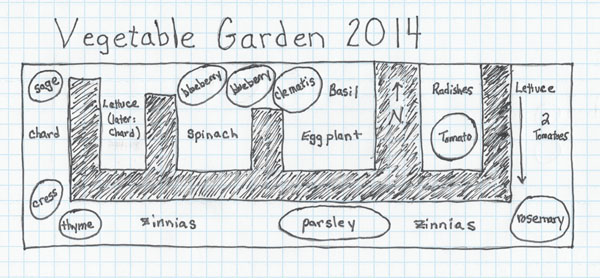 Vegetable Garden 2014
sage
Lettuce
(later:
chard)
blueberry
blueberry
clematis
Basil
N
Radishes
Lettuce
chard
Spinach
Eggplant
Tomato
2
Tomatoes
cress
thyme
zinnias
parsley
zinnias
rosemary